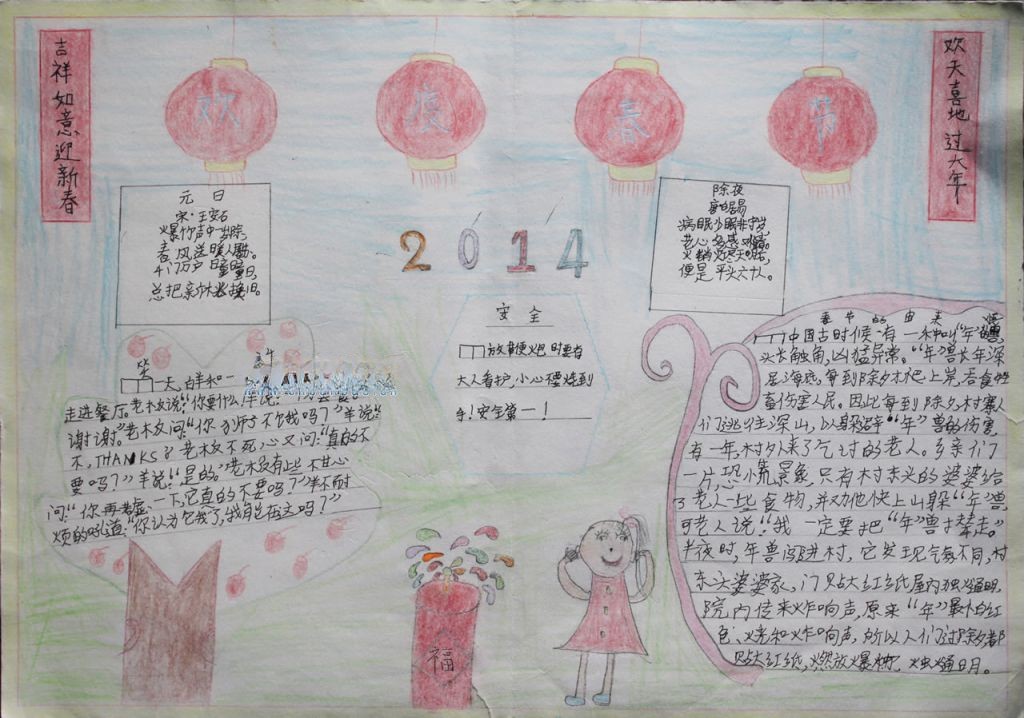 吉祥如意迎新春
欢度春节
欢天喜地过大年
元日
宋·王安石
爆竹声中一岁除,
春风送暖入屠苏。
千门万户曈曈日,
总把新桃换旧
除夜
白居易
病眠少眠非守岁,
老心多感
火销灯尽天明
便是平头六十人。
2014
安全
放鞭炮时要有
大人看护,小心烧到
手!安全第一!
笑
一天,羊和
走进餐厅。老木又说:“你要什么
谢谢。”老木又问:“你
不,THANKS?老木又不死心又问:“真的不
要吗?”羊说:“是的。”老木又有些不甘心
问:“你再考虑一下,它真的不要吗?”羊不耐
烦的吼道:“你认为
春节的由来
中国古时候有一种叫“年”的兽
头长触角,凶猛异常。“年”兽长年深
居海底,每到除夕才爬上岸,吞食牲
畜伤害人民。因此每到除夕村寨人
们逃往深山,以躲避“年”兽的伤害,
有一年,村外来了乞讨的老人。乡亲们
一片恐慌景象,只有村东头的婆婆给
了老人一些食物,并劝他快上山躲“年”兽,
可老人说“我一定要把“年”兽撵走。”
半夜时,年兽闯进村,它发现气氛不同,村
东头婆婆家,门贴大红纸屋内烛通明,
院内传来炸响声,原来“年”最怕红
色、火光和炸响声,所以人们过除夕都
贴大红纸,燃放爆竹,烛通明。
福